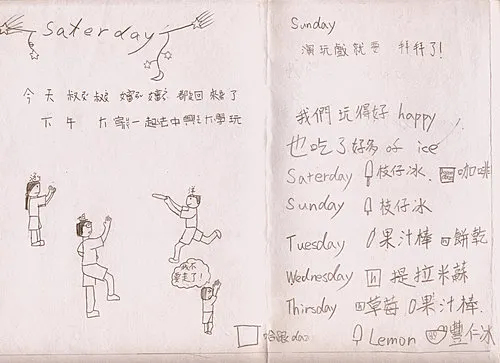 Saterday
今天叔叔嬸嬸都回來了
下午大家一起去中興大學玩
我不要走了!
Sunday
演玩戲就要拜拜了!
我們玩得好 happy
也吃了好多 of ice
Saterday 枝仔冰、咖啡
Sunday 枝仔冰
Tuesday 果汁棒 餅乾
Wednesday 提拉米蘇
Thirsday 草莓 果汁棒
Lemon 豐仁冰